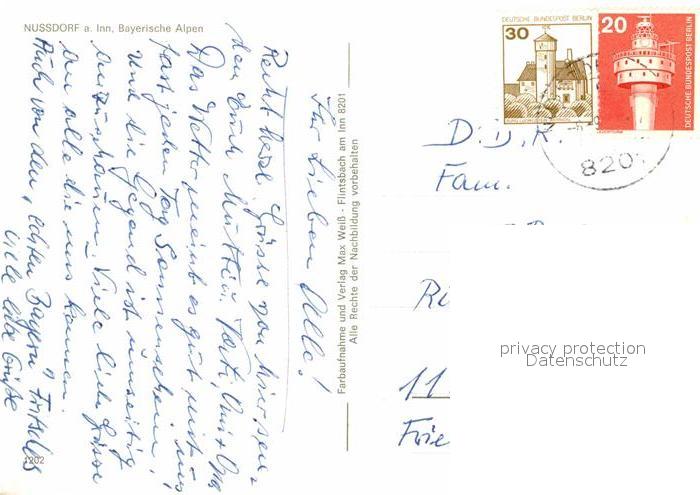 NUSSDORF a. Inn, Bayerische Alpen
Ihr Lieben Alle!
Recht herzl. Grüsse von hier
den Eure Mutti, Vati, Omi + Opa
Das Wetter meint es gut mit uns,
fast jeden Tag Sonnenschein,
und die Gegend ist
Viele liebe Grüsse
an alle die uns kennen.
Auch von den "echten Bayern"
viele liebe Grüße
1202
Farbaufnahme und Verlag Max Weiß - Flintsbach am Inn 8201
Alle Rechte der Nachbildung vorbehalten
DEUTSCHE BUNDESPOST BERLIN
30
20
DEUTSCHE BUNDESPOST BERLIN
820
D.D.R.
Fam.
Ri
11
Frie
privacy protection
Datenschutz